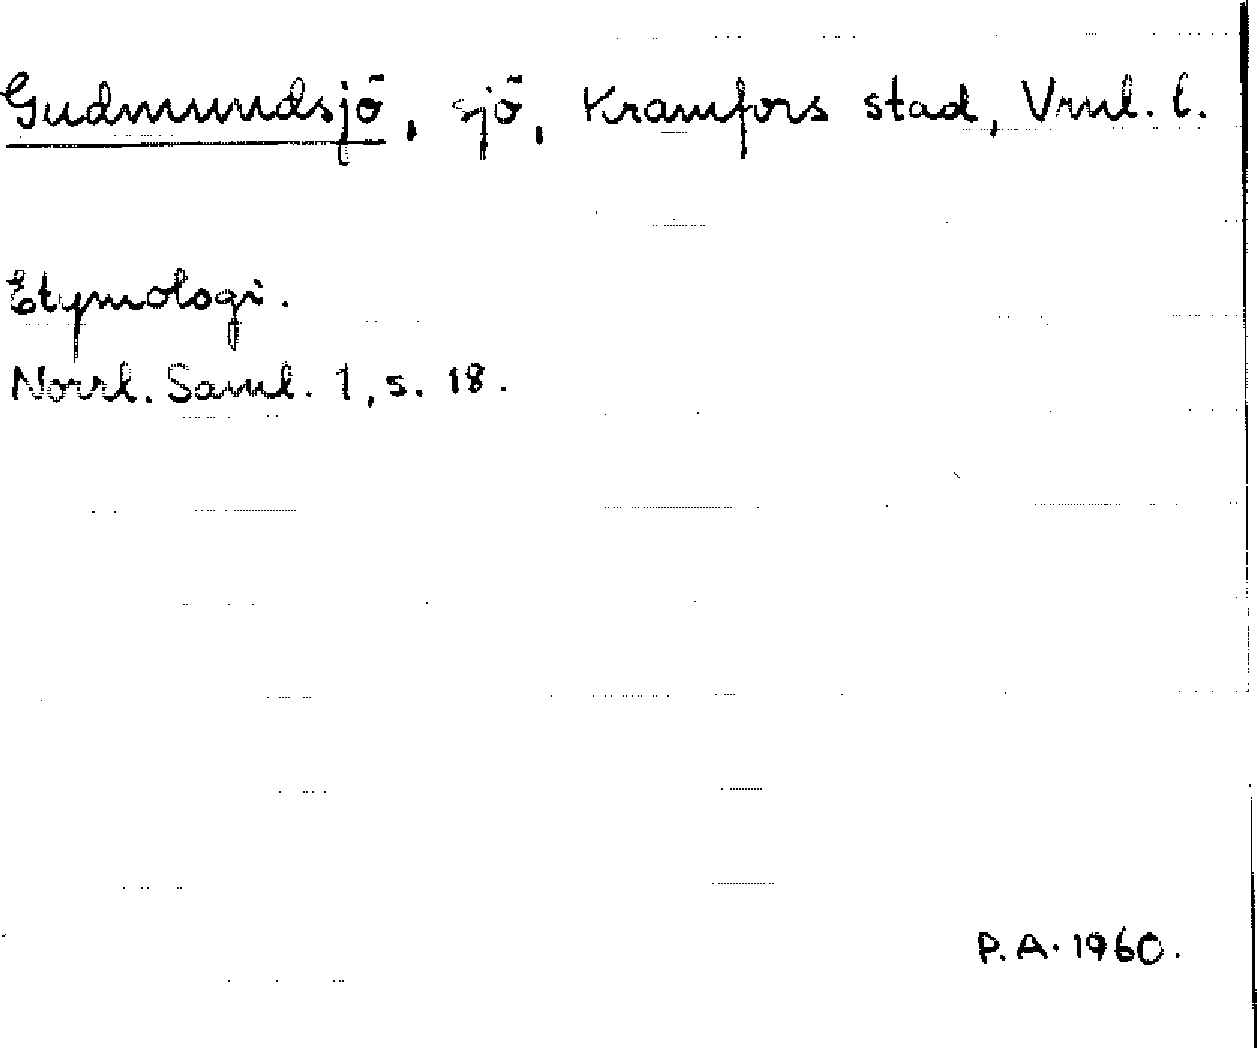 Gudmundsjö, sjö, Kramfors stad, Vrnl. l.
Etymologi.
Norrl. Saml. 1, s. 18.
P.A. 1960.